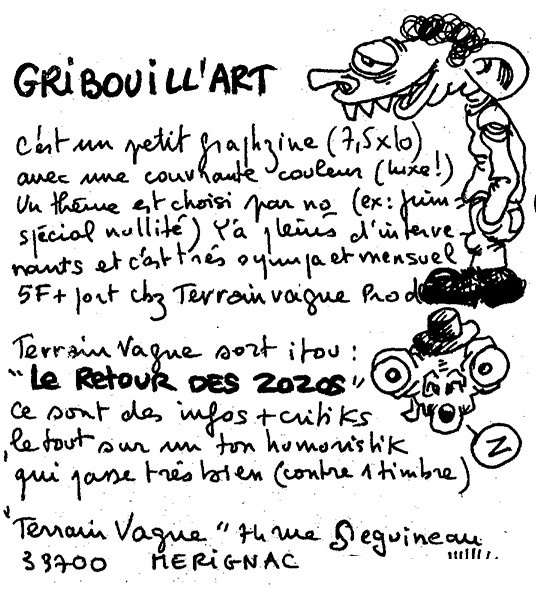 GRIBOUILL'ART
c'est un petit graphzine (7,5x10)
avec une couvrante couleur (luxe!)
Un thème est choisi par no (ex: juin
spécial nullité) Y'a pleins d'interve-
nants et c'est très sympa et mensuel
5F + port chz Terrain vague Prod
Terrain Vague sort itou :
"Le RETOUR DES ZOZOS"
ce sont des infos + critiks
le tout sur un ton humoristik
qui passe très bien (contre 1 timbre)
"Terrain Vague" 74 rue Seguineau
33700 MERIGNAC
Z